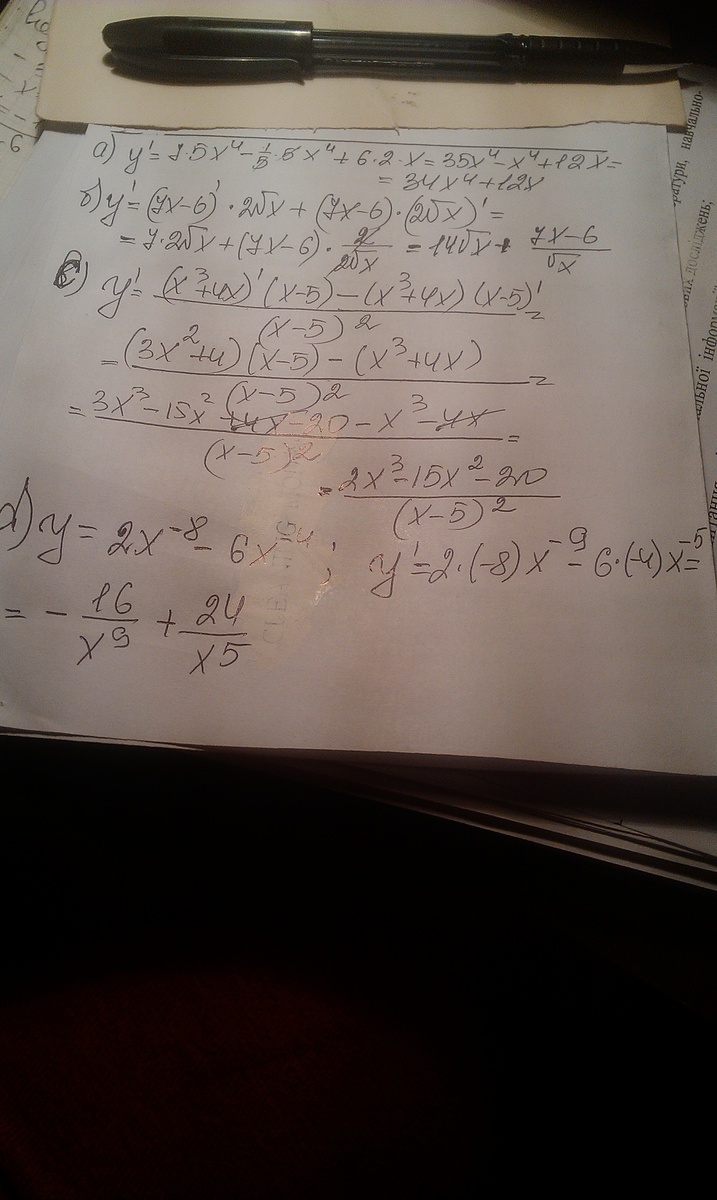 а) y' = 7·5x⁴ - 1/5·5x⁴ + 6·2·x = 35x⁴ - x⁴ + 12x =
= 34x⁴ + 12x
б) y' = (7x-6)'·2√x + (7x-6)·(2√x)' =
= 7·2√x + (7x-6)·2/2√x = 14√x + 7x-6/√x
c) y' = (x³+4x)'(x-5) - (x³+4x)(x-5)'/(x-5)² =
= (3x²+4)(x-5) - (x³+4x)/(x-5)² =
= 3x³ - 15x² + 4x - 20 - x³ - 4x/(x-5)² =
= 2x³ - 15x² - 20/(x-5)²
d) y = 2x⁻⁸ - 6x⁻⁴; y' = 2·(-8)x⁻⁹ - 6·(-4)x⁻⁵ =
= - 16/x⁹ + 24/x5
ратури, навчально-
досліджень;
альної інформа